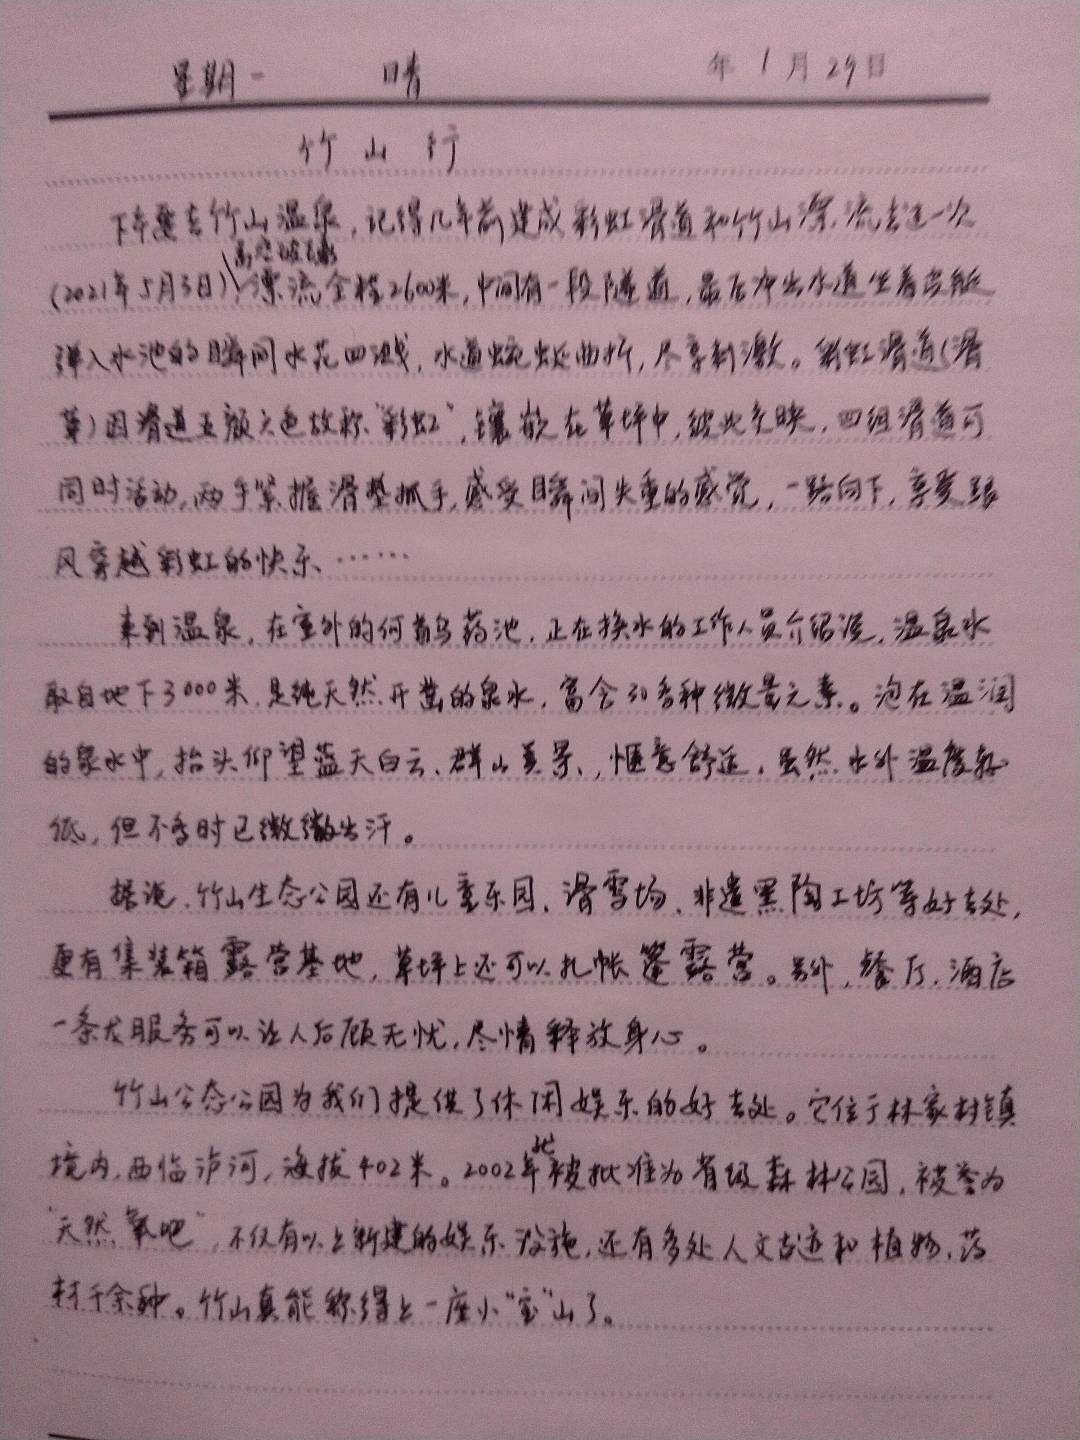 星期一 晴 年1月29日
竹山行
下午要去竹山温泉,记得几年前建成彩虹滑道和竹山漂流去过一次
高空玻璃
(2021年5月3日),漂流全程2600米,中间有一段隧道,最后冲出水道坐着皮艇
弹入水池的瞬间水花四溅,水道蜿蜒曲折,尽享刺激。彩虹滑道(滑
草)因滑道五颜六色故称“彩虹”,镶嵌在草坪中,彼此交映,四组滑道可
同时活动,两手紧握滑垫抓手,感受瞬间失重的感觉,一路向下,享受跟
风穿越彩虹的快乐、……
来到温泉,在室外的何首乌药池,正在换水的工作人员介绍说,温泉水
取自地下3000米,是纯天然开凿的泉水,富含30多种微量元素。泡在温润
的泉水中,抬头仰望蓝天白云、群山美景,惬意舒适,虽然水外温度较
低,但不多时已微微出汗。
据说,竹山生态公园还有儿童乐园、滑雪场、非遗黑陶工坊等好去处,
更有集装箱露营基地,草坪上还可以扎帐篷露营。另外,餐厅、酒店
一条龙服务可以让人后顾无忧,尽情释放身心。
竹山公态公园为我们提供了休闲娱乐的好去处。它位于林家村镇
境内,西临泸河,海拔402米。2002年就被批准为省级森林公园,被誉为
“天然氧吧”,不仅有以上新建的娱乐设施,还有多处人文古迹和植物、药
材千余种。竹山真能称得上一座小“宝”山了。